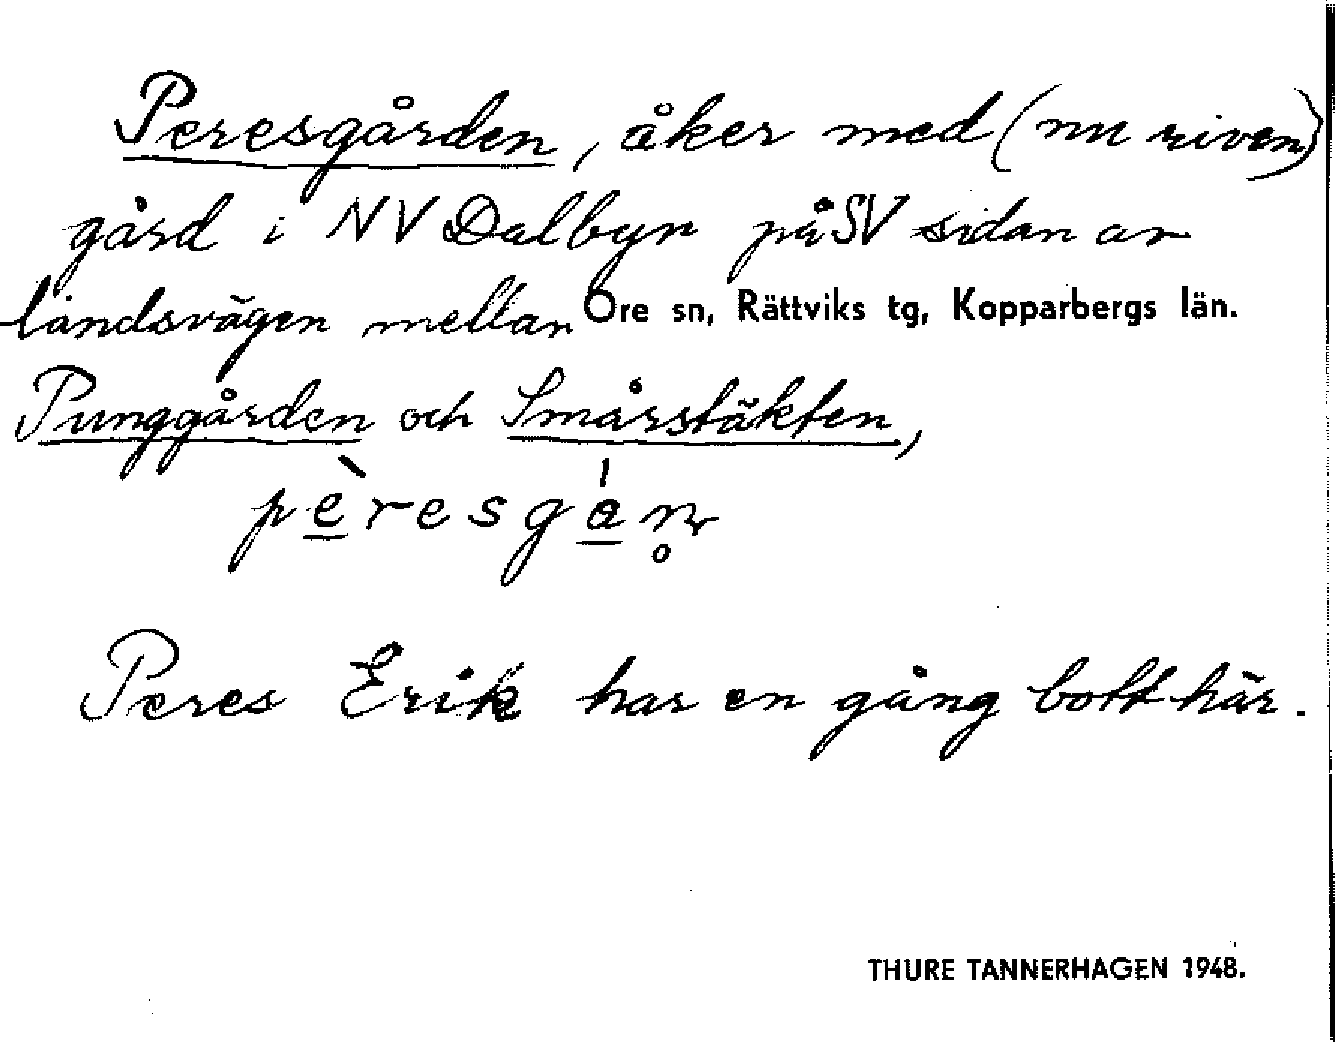 Peresgården, åker med (nu riven)
gård i NV Dalbyn på SV sidan av
landsvägen mellan Ore sn, Rättviks tg, Kopparbergs län.
Punggården och Smårstäkten,
pèresgán̥
Peres Erik har en gång bott här.
THURE TANNERHAGEN 1948.